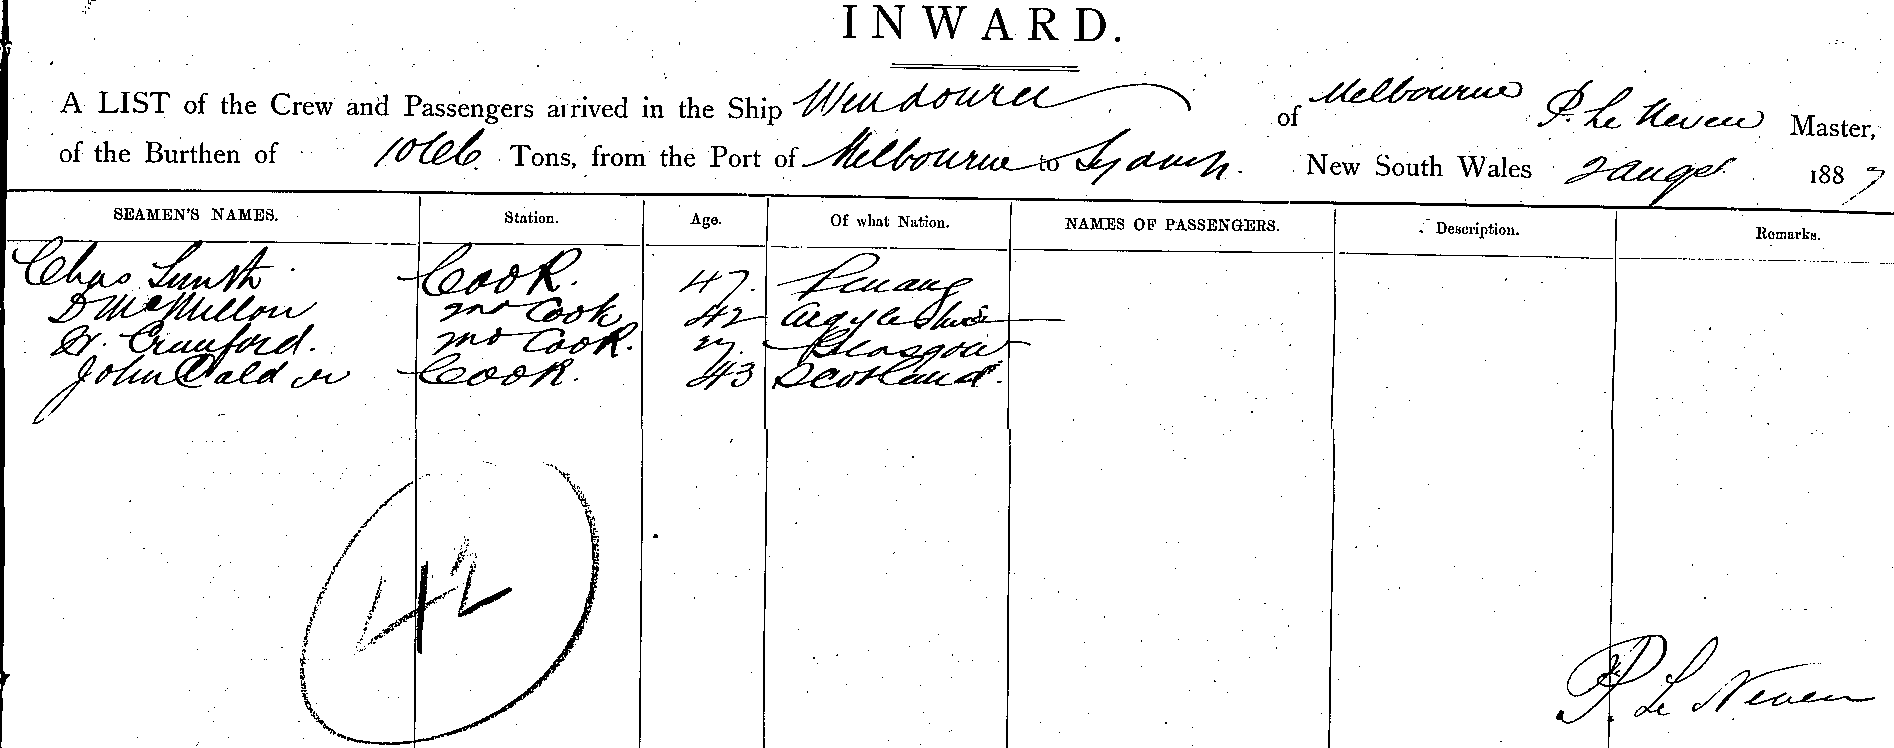 INWARD.
A LIST of the Crew and Passengers arrived in the Ship Wendouree of Melbourne P. Le Neven Master,
of the Burthen of 1066 Tons, from the Port of Melbourne to Sydney. New South Wales 2 Augst 1887
SEAMEN'S NAMES. Station. Age. Of what Nation. NAMES OF PASSENGERS. Description. Remarks.
Chas Smith Cook. 47. Penang
D McMillan Cook 42 Argyleshire
Crauford. Cook. 27. Glasgow
John Calder Cook. 43 Scotland.
42
P. Le Neven